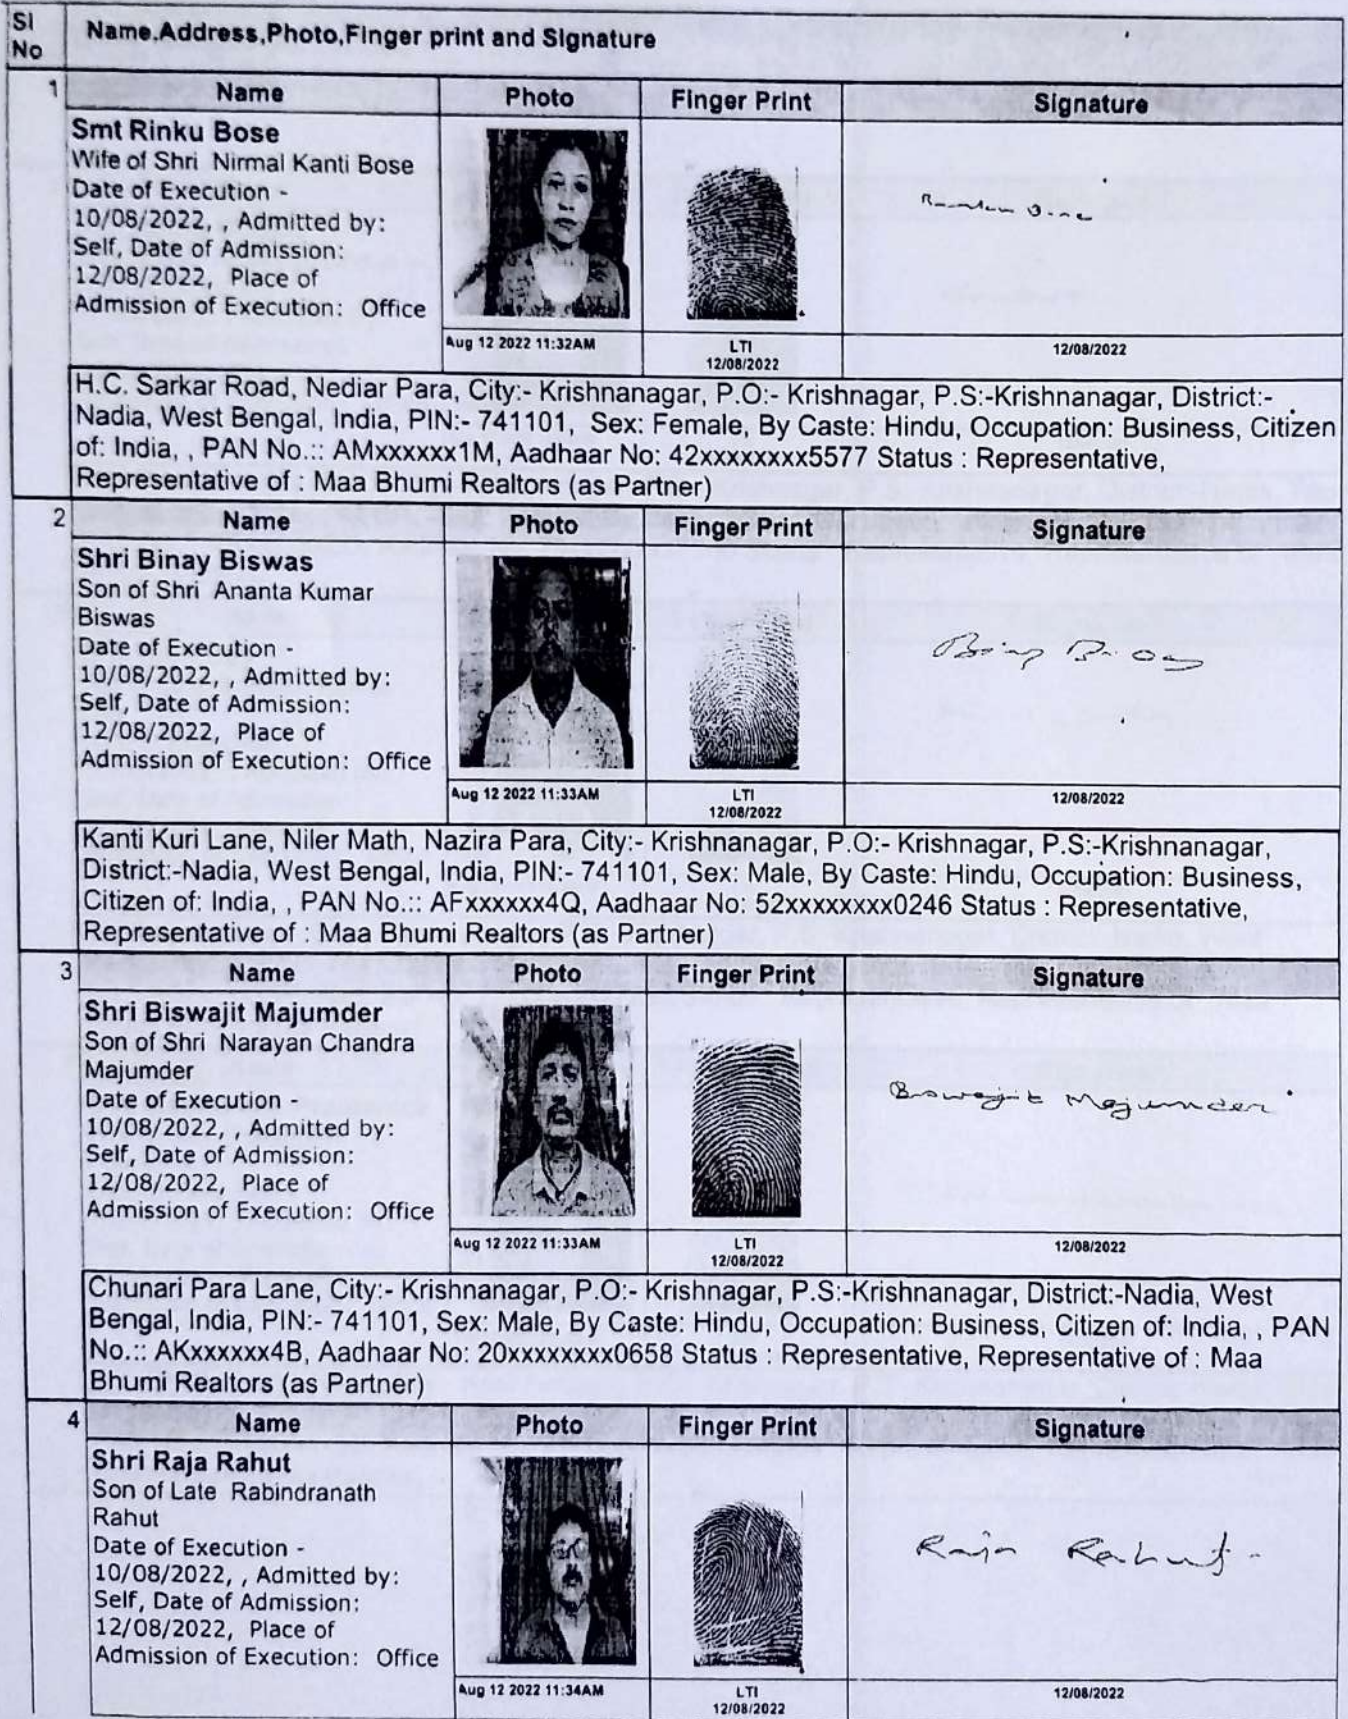 Sl
No
Name,Address,Photo,Finger print and Signature
1
Name
Photo
Finger Print
Signature
Smt Rinku Bose
Wife of Shri Nirmal Kanti Bose
Date of Execution -
10/08/2022, , Admitted by:
Self, Date of Admission:
12/08/2022, Place of
Admission of Execution: Office
Aug 12 2022 11:32AM
LTI
12/08/2022
12/08/2022
H.C. Sarkar Road, Nediar Para, City:- Krishnanagar, P.O:- Krishnagar, P.S:-Krishnanagar, District:-
Nadia, West Bengal, India, PIN:- 741101, Sex: Female, By Caste: Hindu, Occupation: Business, Citizen
of: India, , PAN No.:: AMxxxxxx1M, Aadhaar No: 42xxxxxxxx5577 Status : Representative,
Representative of : Maa Bhumi Realtors (as Partner)
2
Name
Photo
Finger Print
Signature
Shri Binay Biswas
Son of Shri Ananta Kumar
Biswas
Date of Execution -
10/08/2022, , Admitted by:
Self, Date of Admission:
12/08/2022, Place of
Admission of Execution: Office
Aug 12 2022 11:33AM
LTI
12/08/2022
12/08/2022
Kanti Kuri Lane, Niler Math, Nazira Para, City:- Krishnanagar, P.O:- Krishnagar, P.S:-Krishnanagar,
District:-Nadia, West Bengal, India, PIN:- 741101, Sex: Male, By Caste: Hindu, Occupation: Business,
Citizen of: India, , PAN No.:: AFxxxxxx4Q, Aadhaar No: 52xxxxxxxx0246 Status : Representative,
Representative of : Maa Bhumi Realtors (as Partner)
3
Name
Photo
Finger Print
Signature
Shri Biswajit Majumder
Son of Shri Narayan Chandra
Majumder
Date of Execution -
10/08/2022, , Admitted by:
Self, Date of Admission:
12/08/2022, Place of
Admission of Execution: Office
Biswajit Majumder
Aug 12 2022 11:33AM
LTI
12/08/2022
12/08/2022
Chunari Para Lane, City:- Krishnanagar, P.O:- Krishnagar, P.S:-Krishnanagar, District:-Nadia, West
Bengal, India, PIN:- 741101, Sex: Male, By Caste: Hindu, Occupation: Business, Citizen of: India, , PAN
No.:: AKxxxxxx4B, Aadhaar No: 20xxxxxxxx0658 Status : Representative, Representative of : Maa
Bhumi Realtors (as Partner)
4
Name
Photo
Finger Print
Signature
Shri Raja Rahut
Son of Late Rabindranath
Rahut
Date of Execution -
10/08/2022, , Admitted by:
Self, Date of Admission:
12/08/2022, Place of
Admission of Execution: Office
Raja Rahut
Aug 12 2022 11:34AM
LTI
12/08/2022
12/08/2022